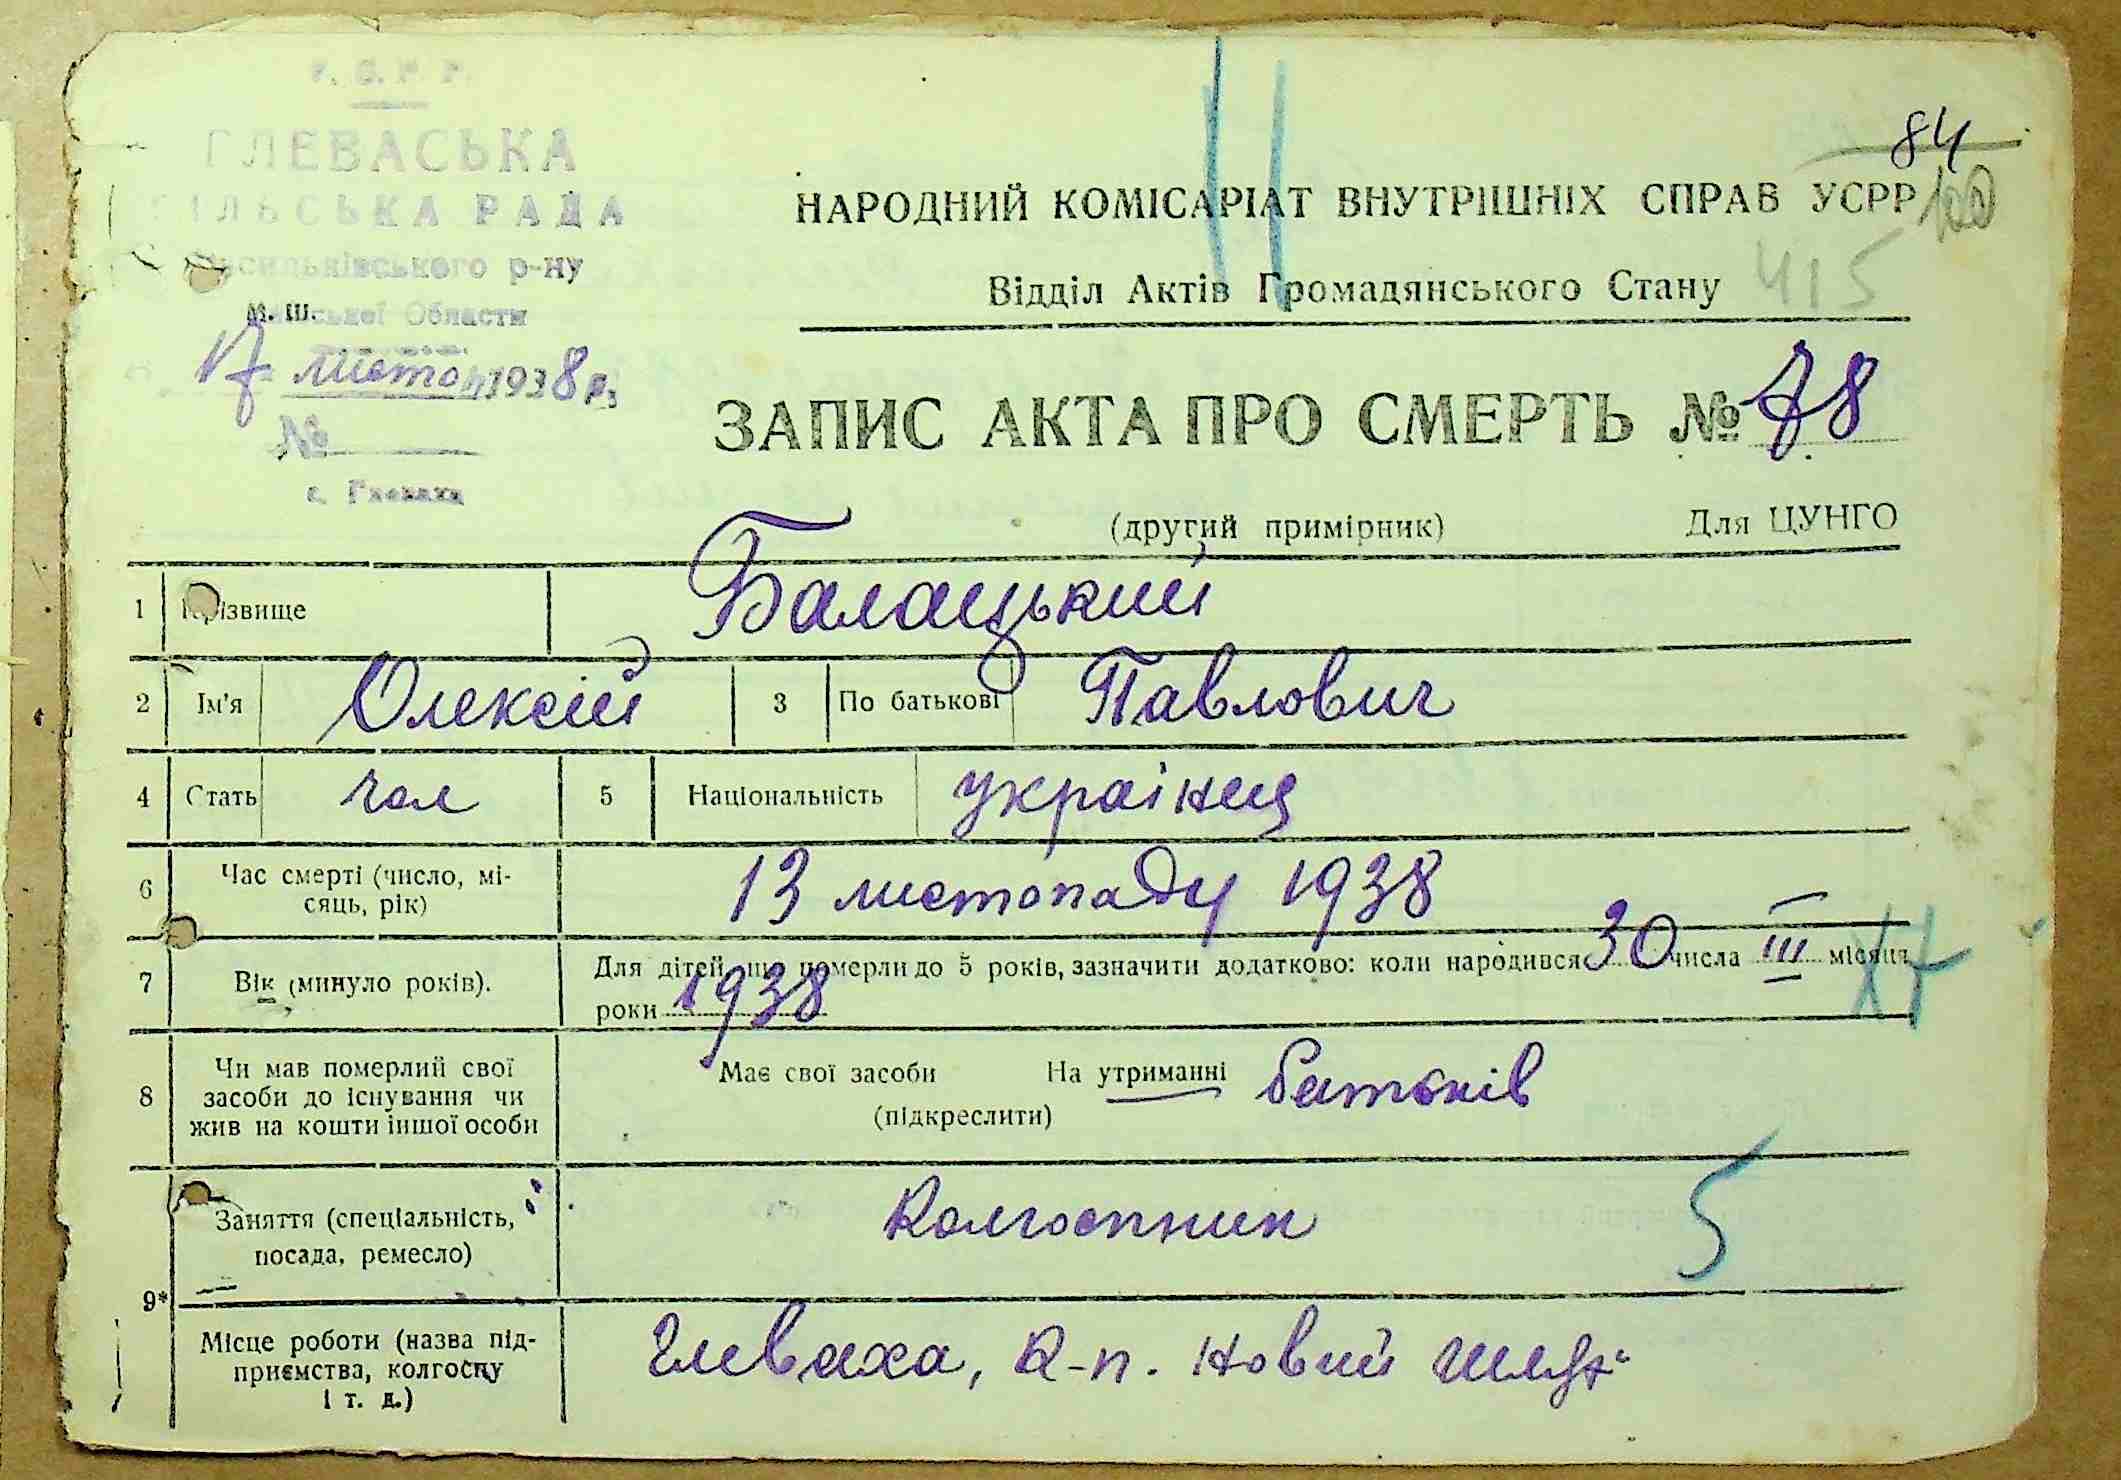 У. С. Р. Р.
ГЛЕВАСЬКА
СІЛЬСЬКА РАДА
Васильківського р-ну
М. Ш.
Київської Области
17 листоп 1938 р.
№
с. Глеваха
84
100
НАРОДНИЙ КОМІСАРІАТ ВНУТРІШНІХ СПРАВ УСРР
Відділ Актів Громадянського Стану 415
ЗАПИС АКТА ПРО СМЕРТЬ № 78
(другий примірник) Для ЦУНГО
1 Прізвище Балацький
2 Ім'я Олексій 3 По батькові Павлович
4 Стать чол 5 Національність українец
6 Час смерті (число, мі-
сяць, рік) 13 листопаду 1938
7 Вік (минуло років). Для дітей, що померли до 5 років, зазначити додатково: коли народився 30 числа III місяця
роки 1938
8 Чи мав померлий свої
засоби до існування чи
жив на кошти іншої особи
Має свої засоби На утриманні батьків
(підкреслити)
9*
Заняття (спеціальність,
посада, ремесло) Колгоспник 5
Місце роботи (назва під-
приємства, колгоспу
і т. д.)
Глеваха, к-п. Новий шлях